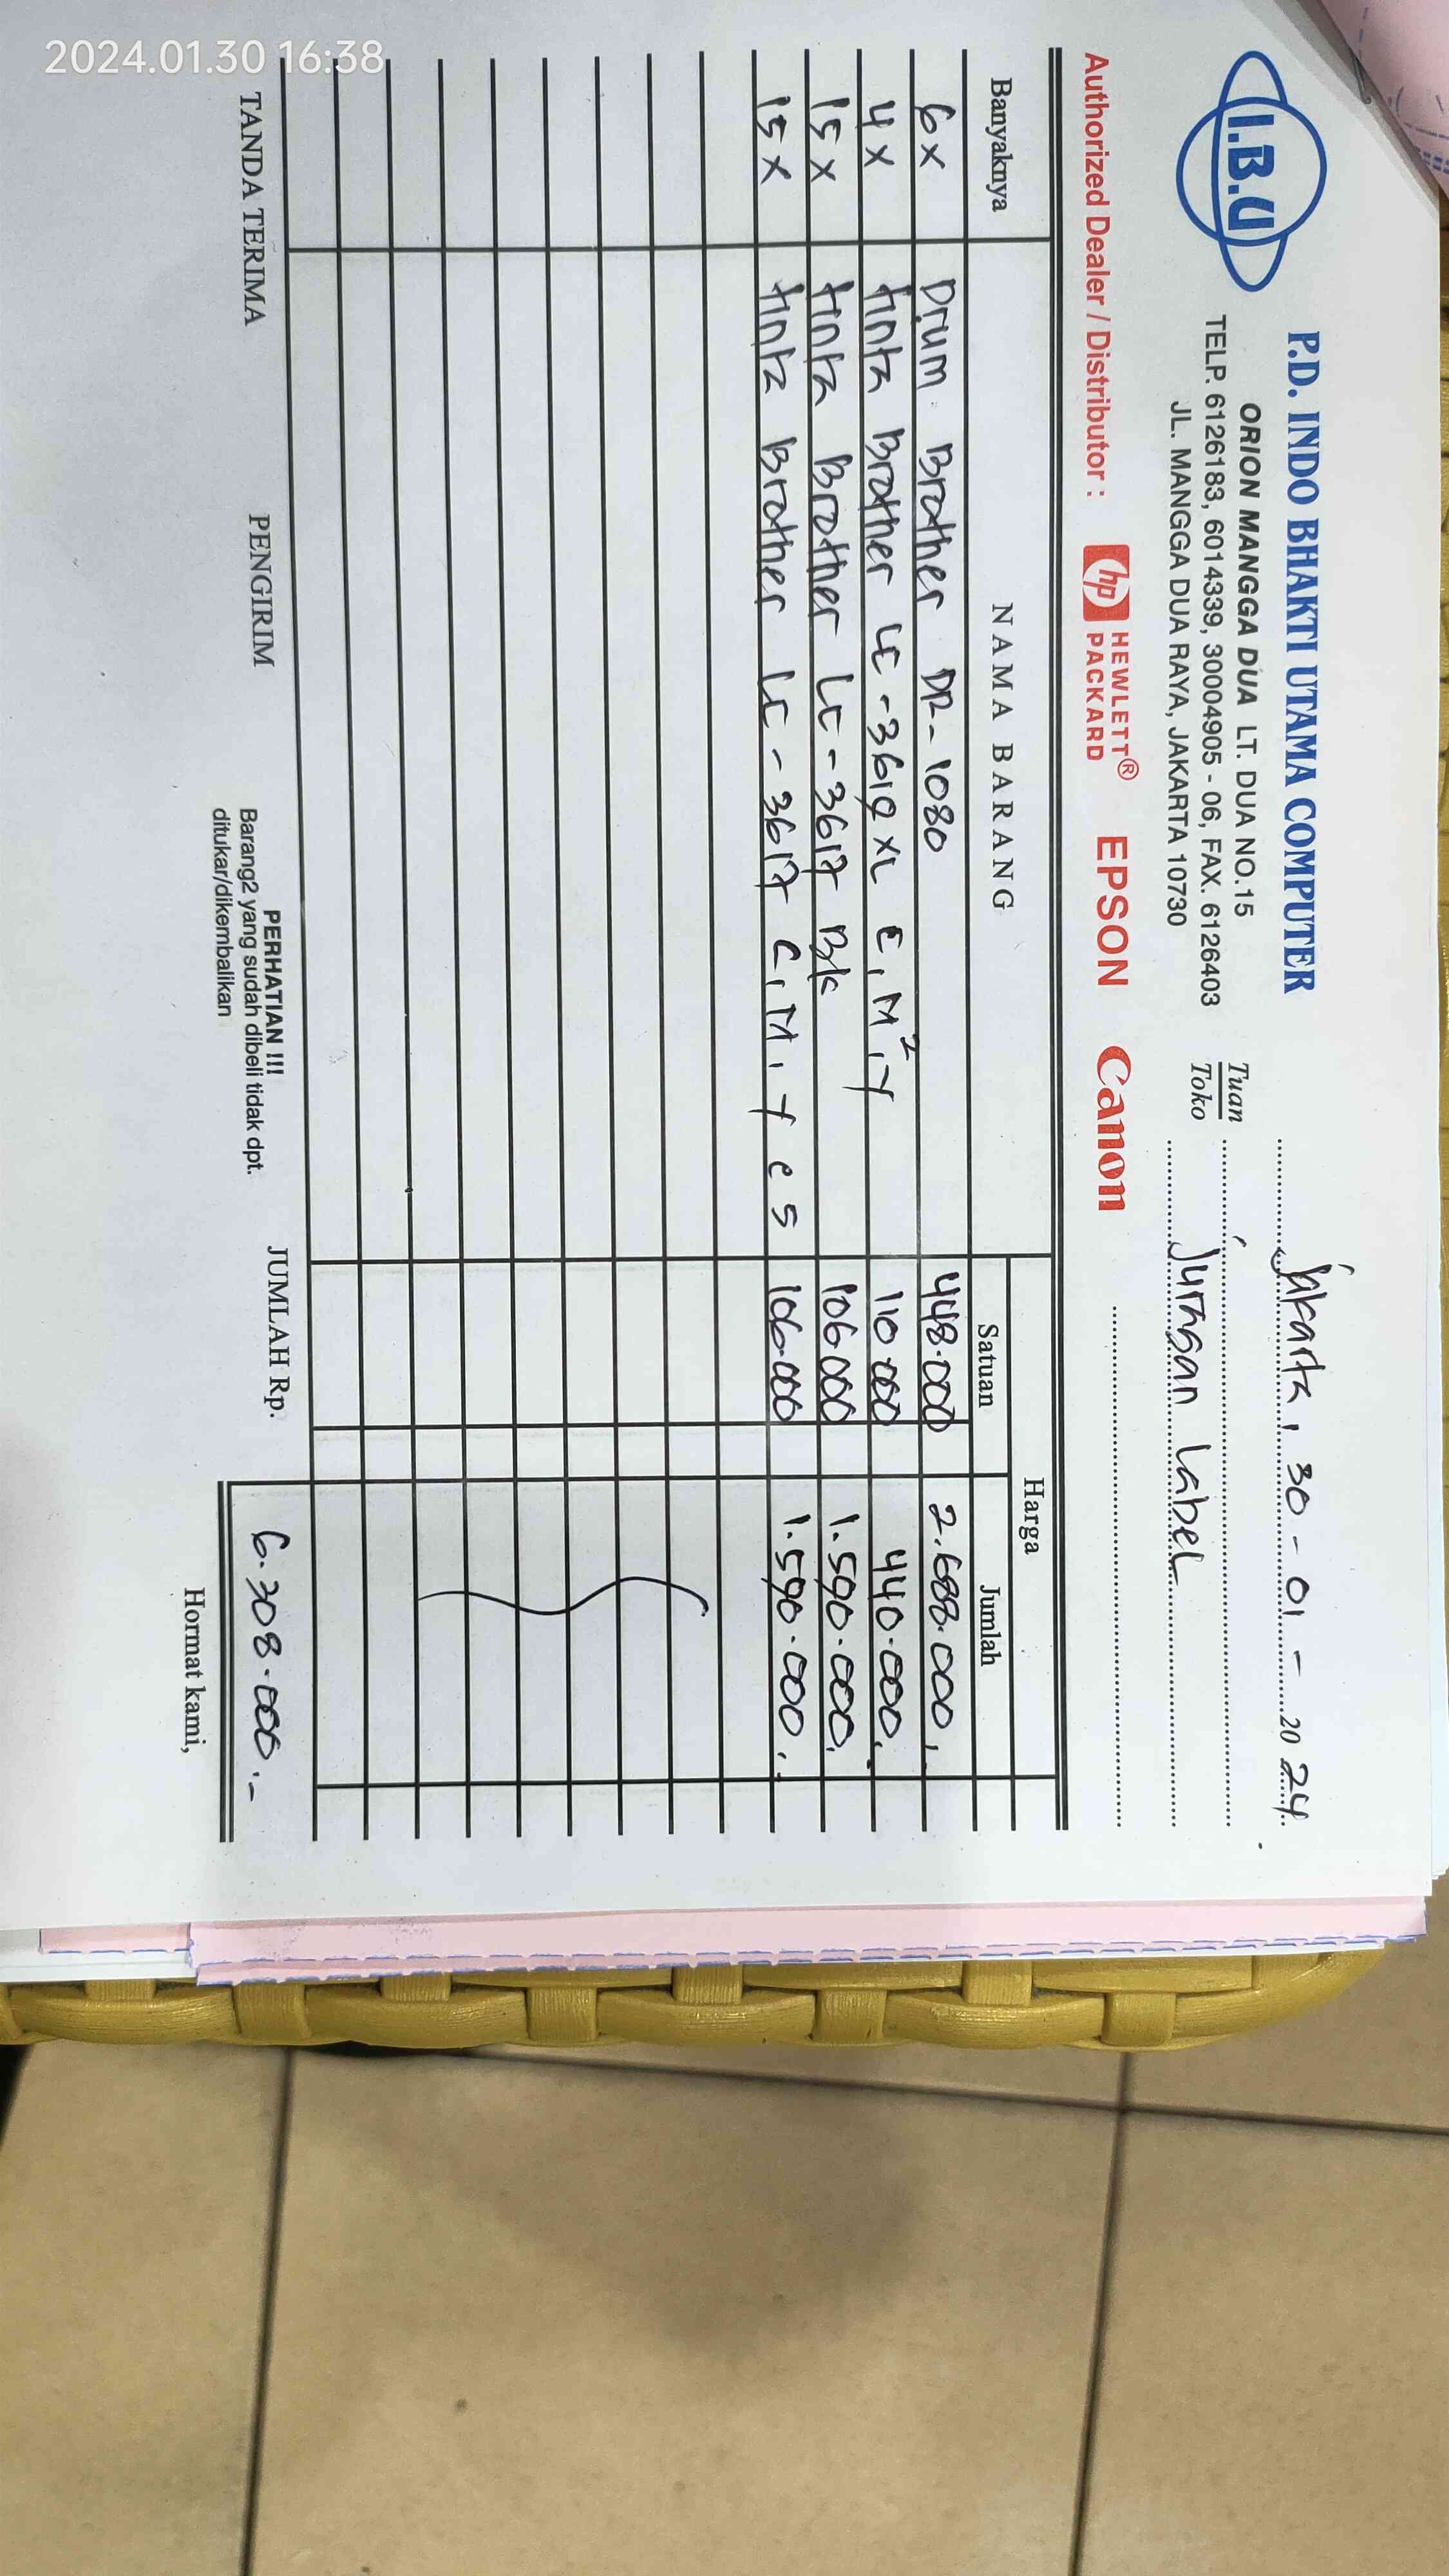 2024.01.30 16:38
I.B.U
P.D. INDO BHAKTI UTAMA COMPUTER
ORION MANGGA DUA LT. DUA NO.15
TELP. 6126183, 6014339, 30004905 - 06, FAX. 6126403
JL. MANGGA DUA RAYA, JAKARTA 10730
Jakarta, 30 - 01 - 2024
Tuan
Toko
Juragan Label
Authorized Dealer / Distributor : hp HEWLETT® PACKARD EPSON Canon
Banyaknya NAMA BARANG Harga
Satuan Jumlah
6 x Drum Brother DR-1080 448.000 2.688.000,
4 x tinta Brother LC-3619 XL C, M², Y 110.000 440.000,
15 x tinta Brother LC-3617 Bk 106.000 1.590.000,
15 x tinta Brother LC-3617 C, M, Y @ 5 106.000 1.590.000,
TANDA TERIMA PENGIRIM JUMLAH Rp. 6.308.000,-
PERHATIAN !!!
Barang2 yang sudah dibeli tidak dpt.
ditukar/dikembalikan
Hormat kami,